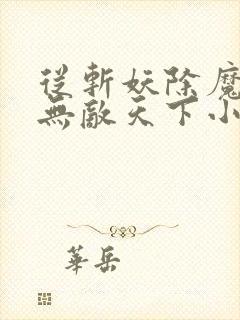 從斬妖除魔
無敵天下小
華岳